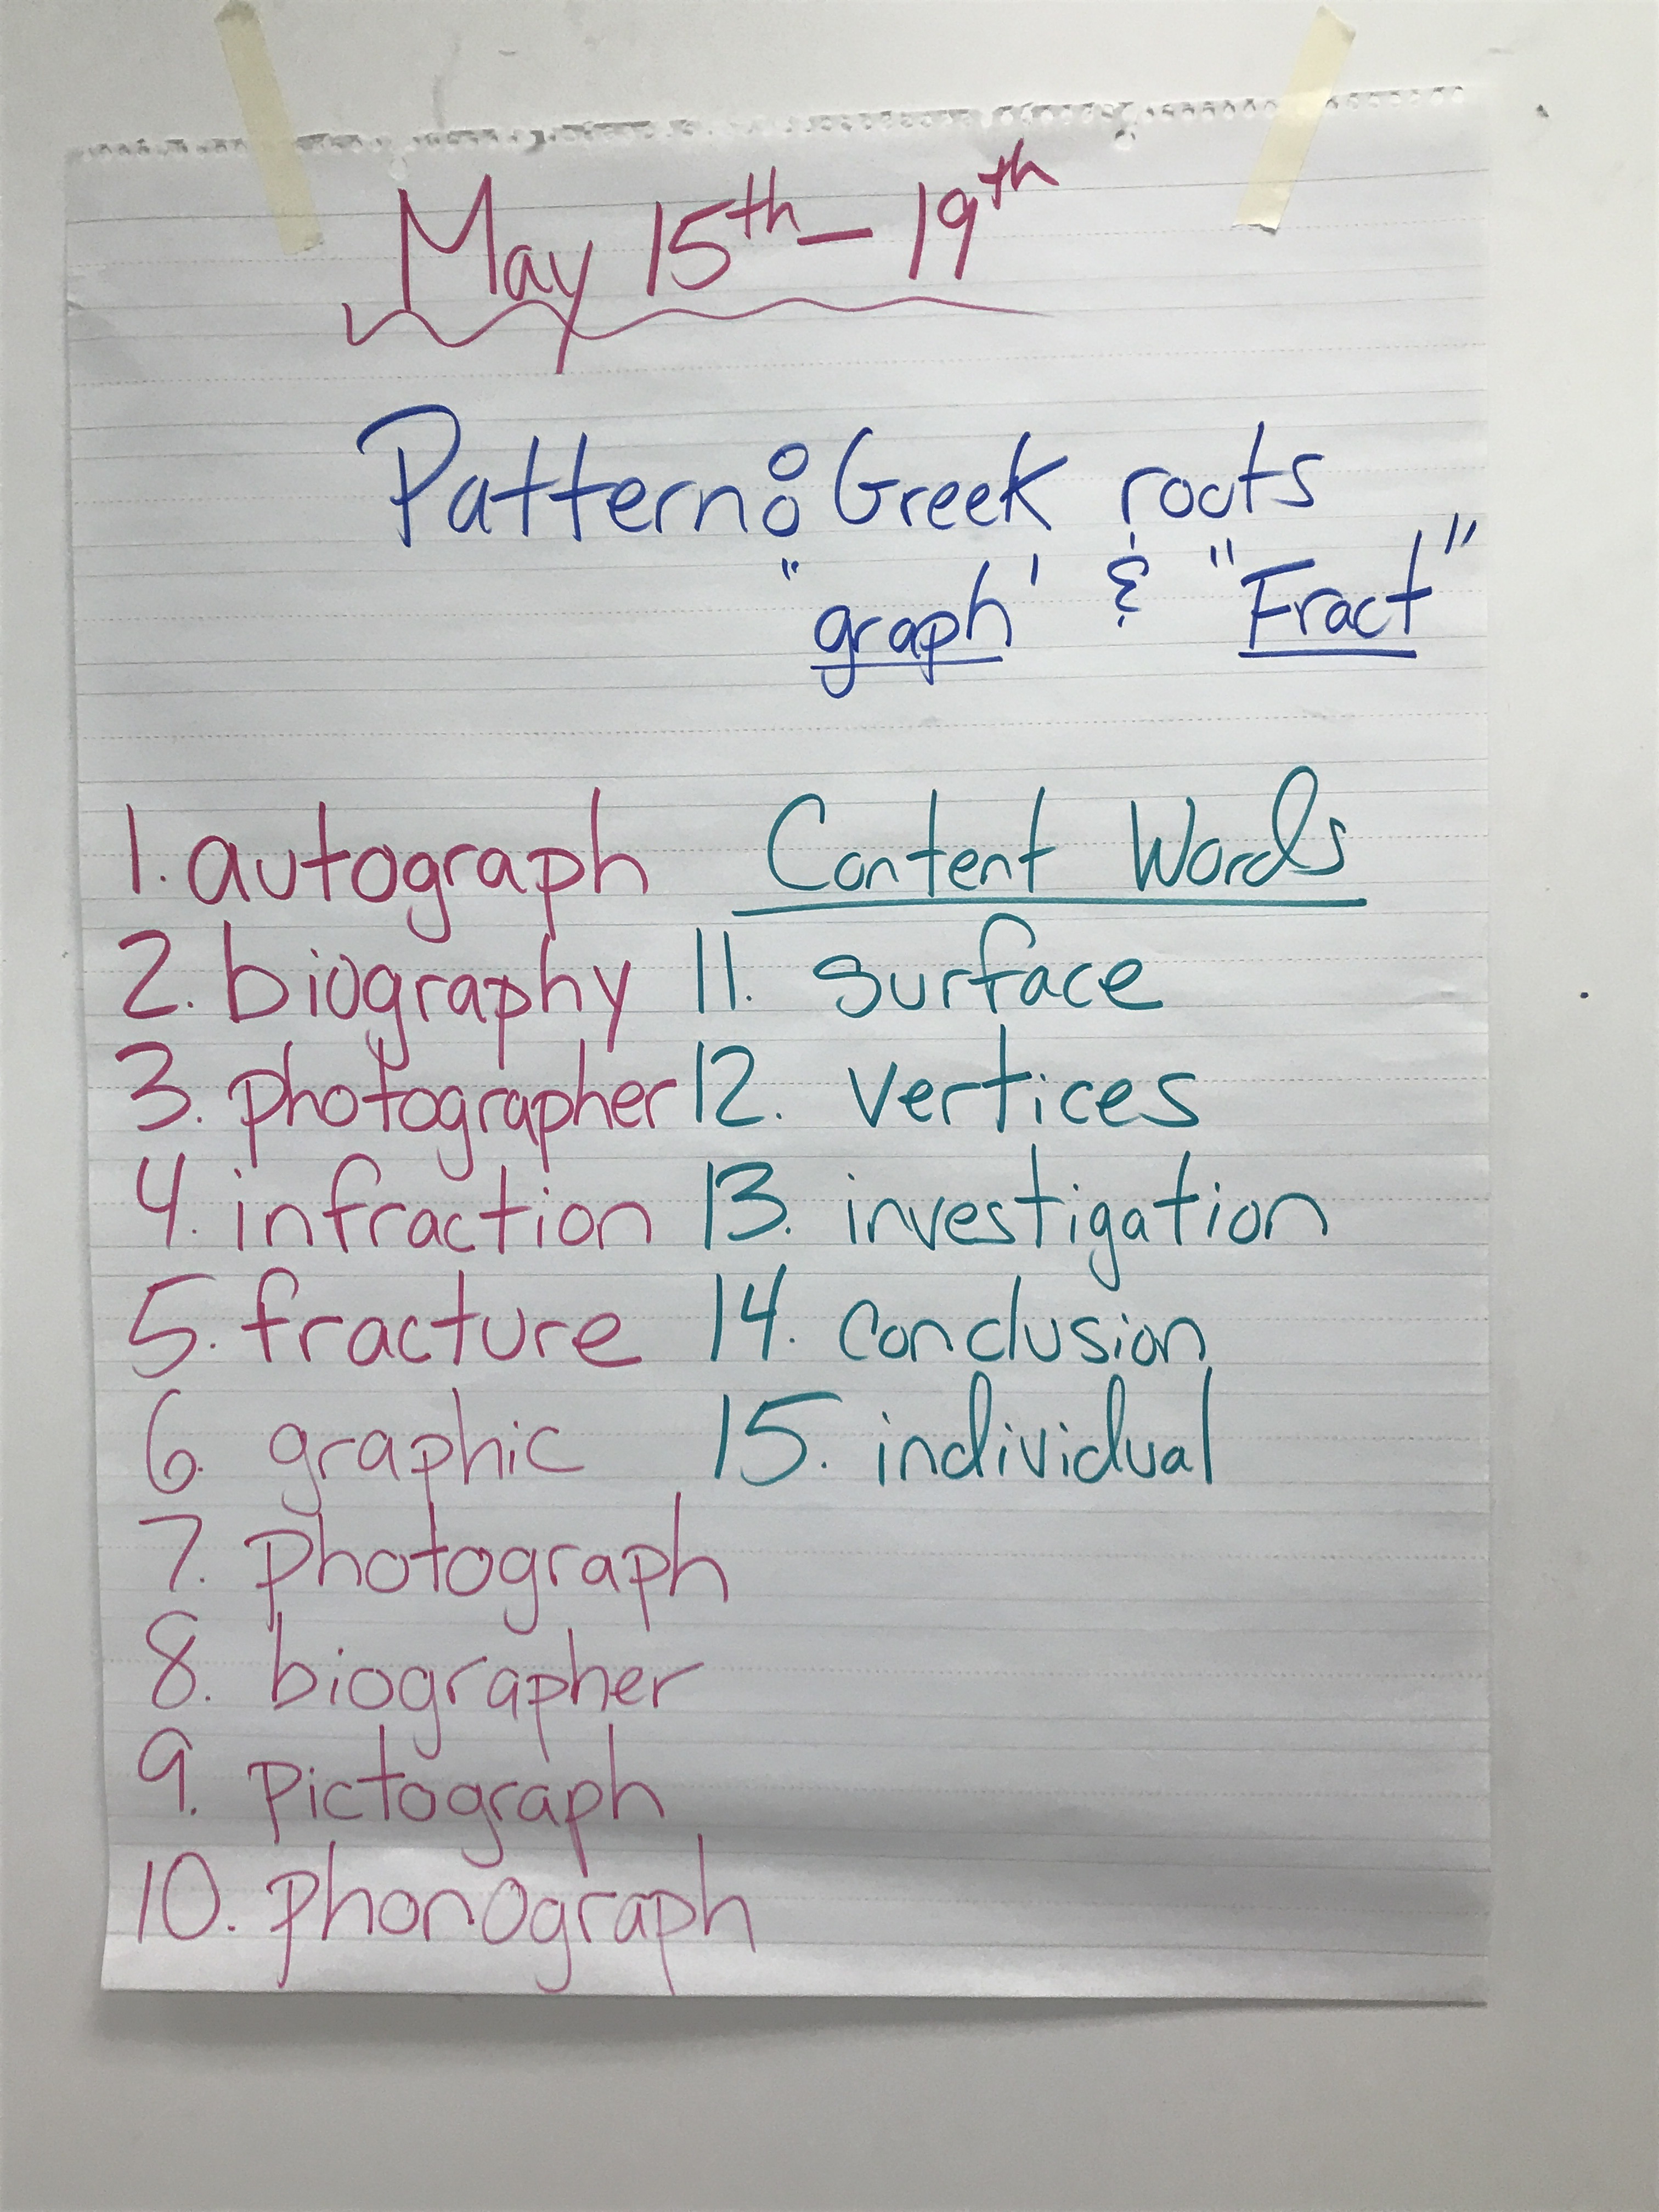 May 15th - 19th
Pattern: Greek roots
"graph' & "Fract"
1. autograph
2. biography
3. photographer
4. infraction
5. fracture
6. graphic
7. photograph
8. biographer
9. pictograph
10. phonograph
Content Words
11. surface
12. vertices
13. investigation
14. conclusion
15. individual